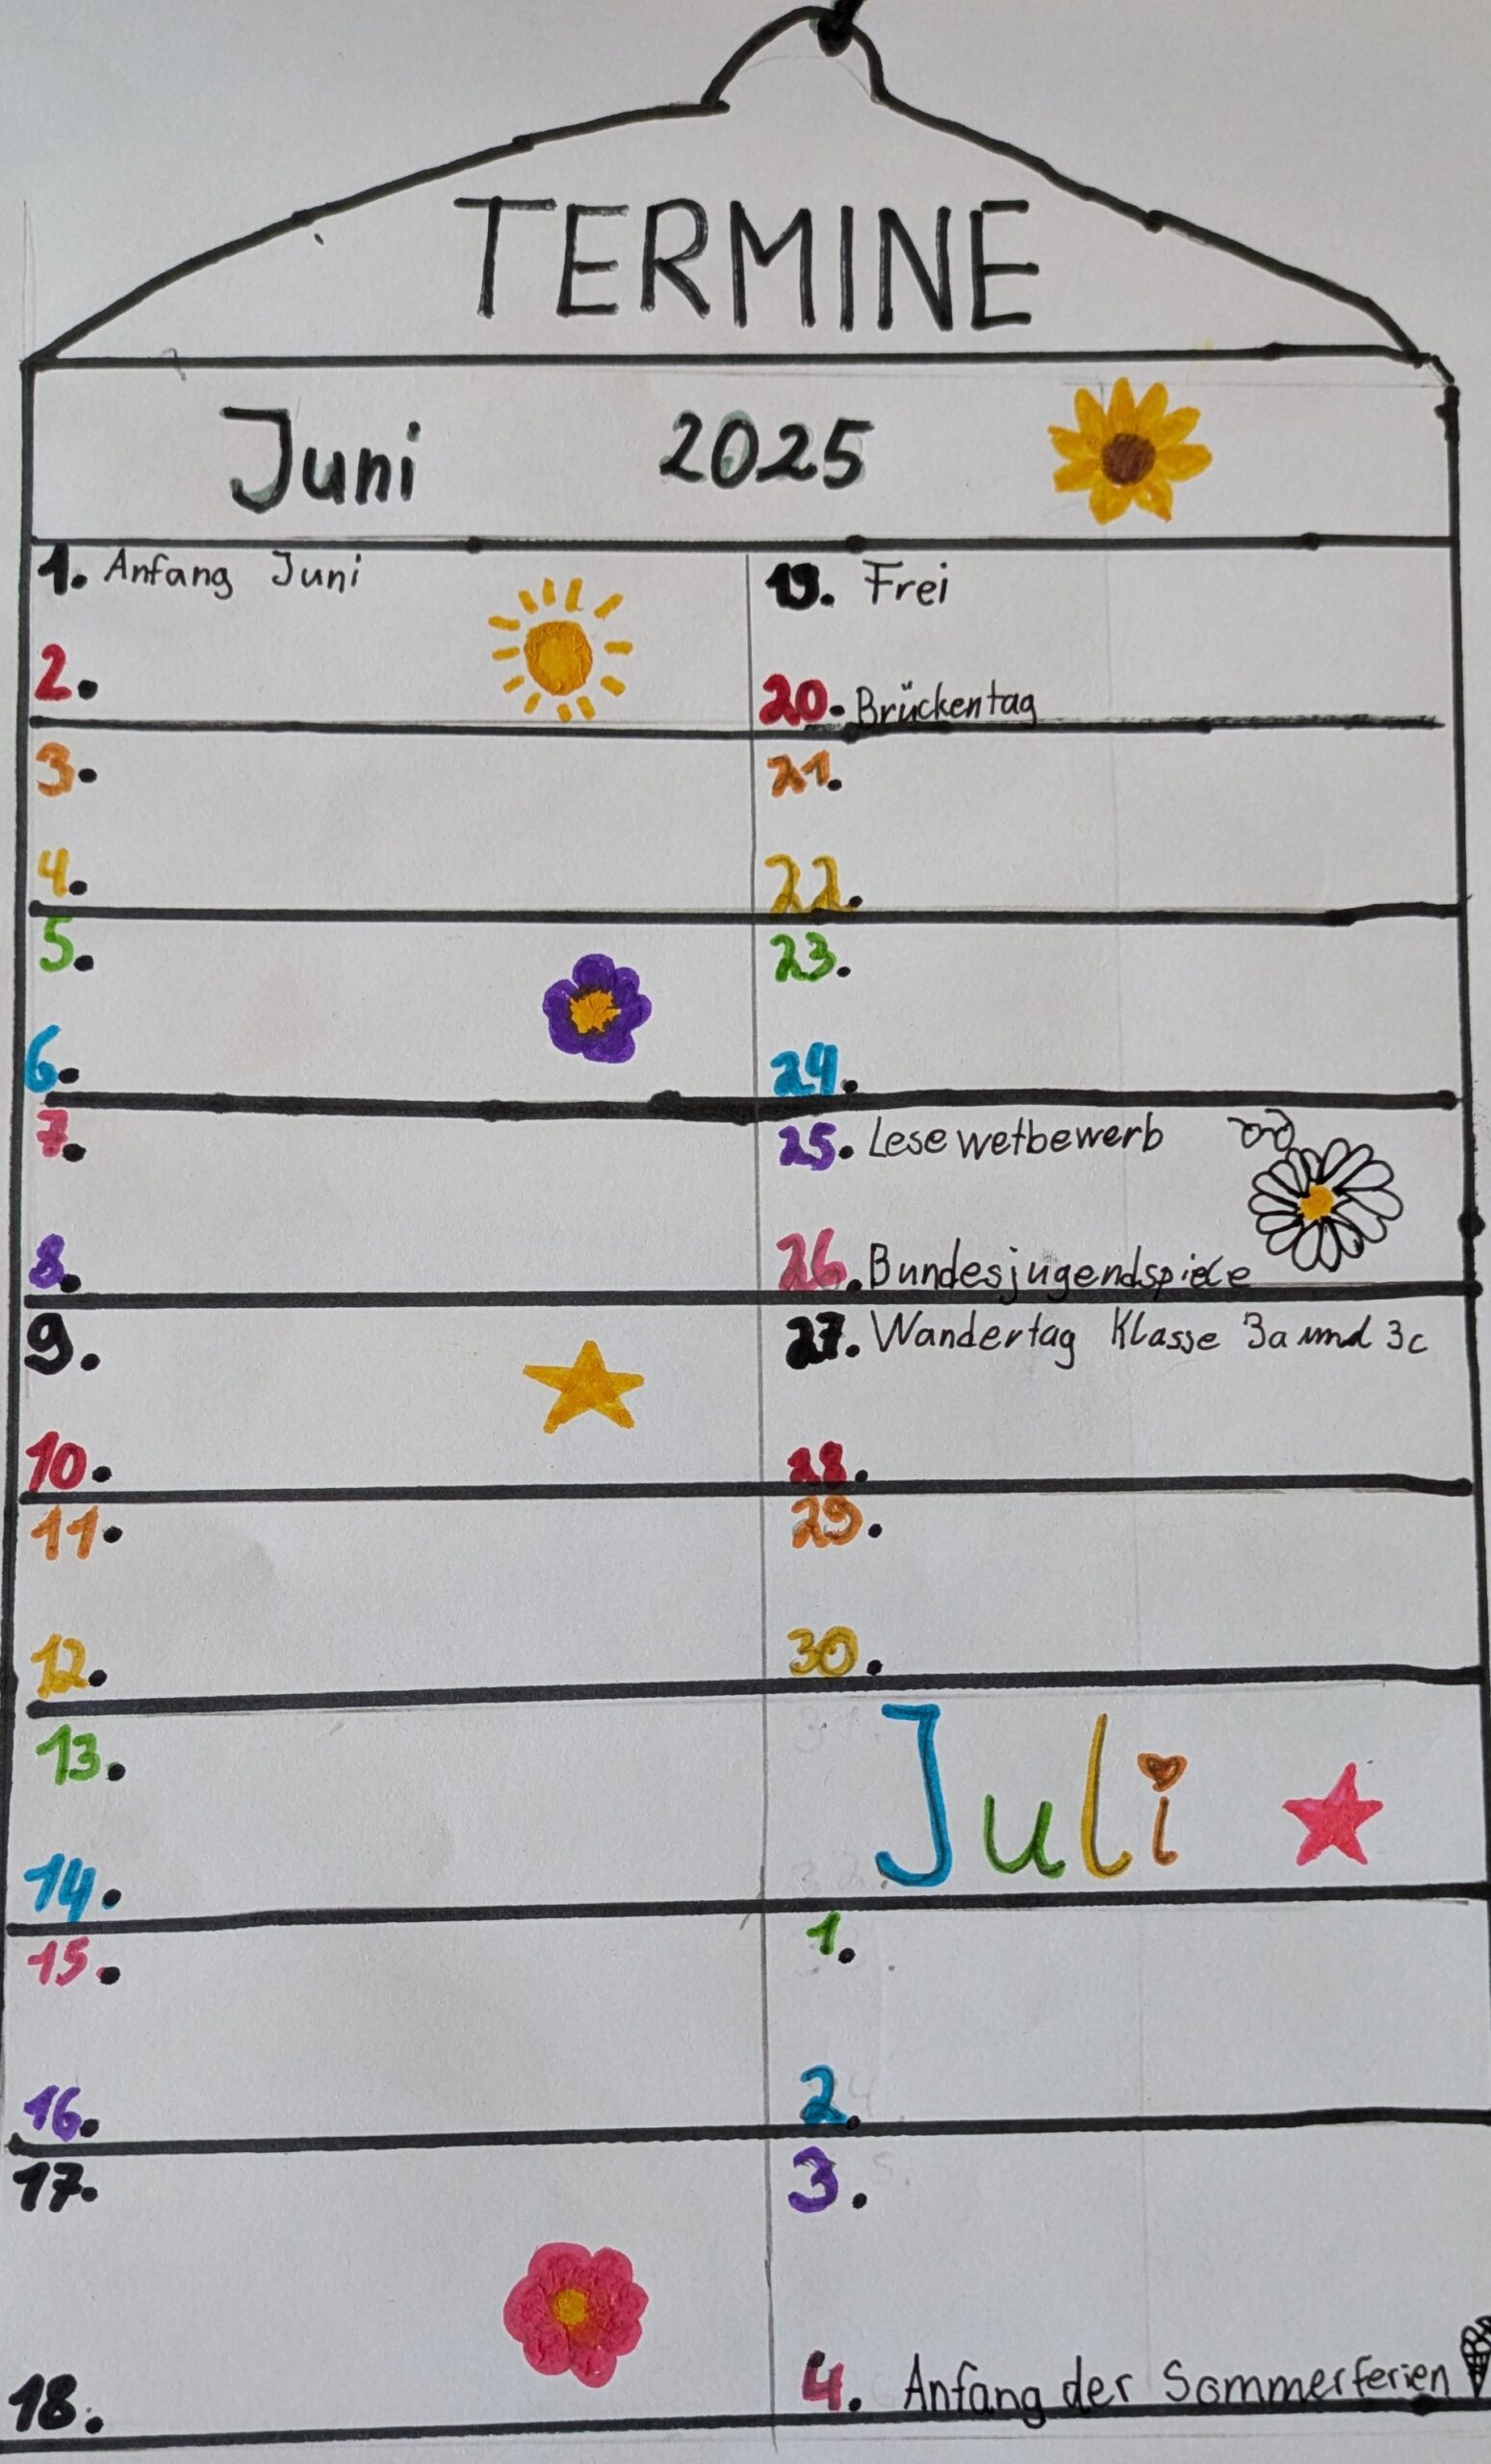 TERMINE
Juni 2025
1. Anfang Juni
2.
3.
4.
5.
6.
7.
8.
9.
10.
11.
12.
13.
14.
15.
16.
17.
18.
19. Frei
20. Brückentag
21.
22.
23.
24.
25. Lesewetbewerb
26. Bundesjugendspiele
27. Wandertag Klasse 3a und 3c
28.
29.
30.
Juli
1.
2.
3.
4. Anfang der Sommerferien